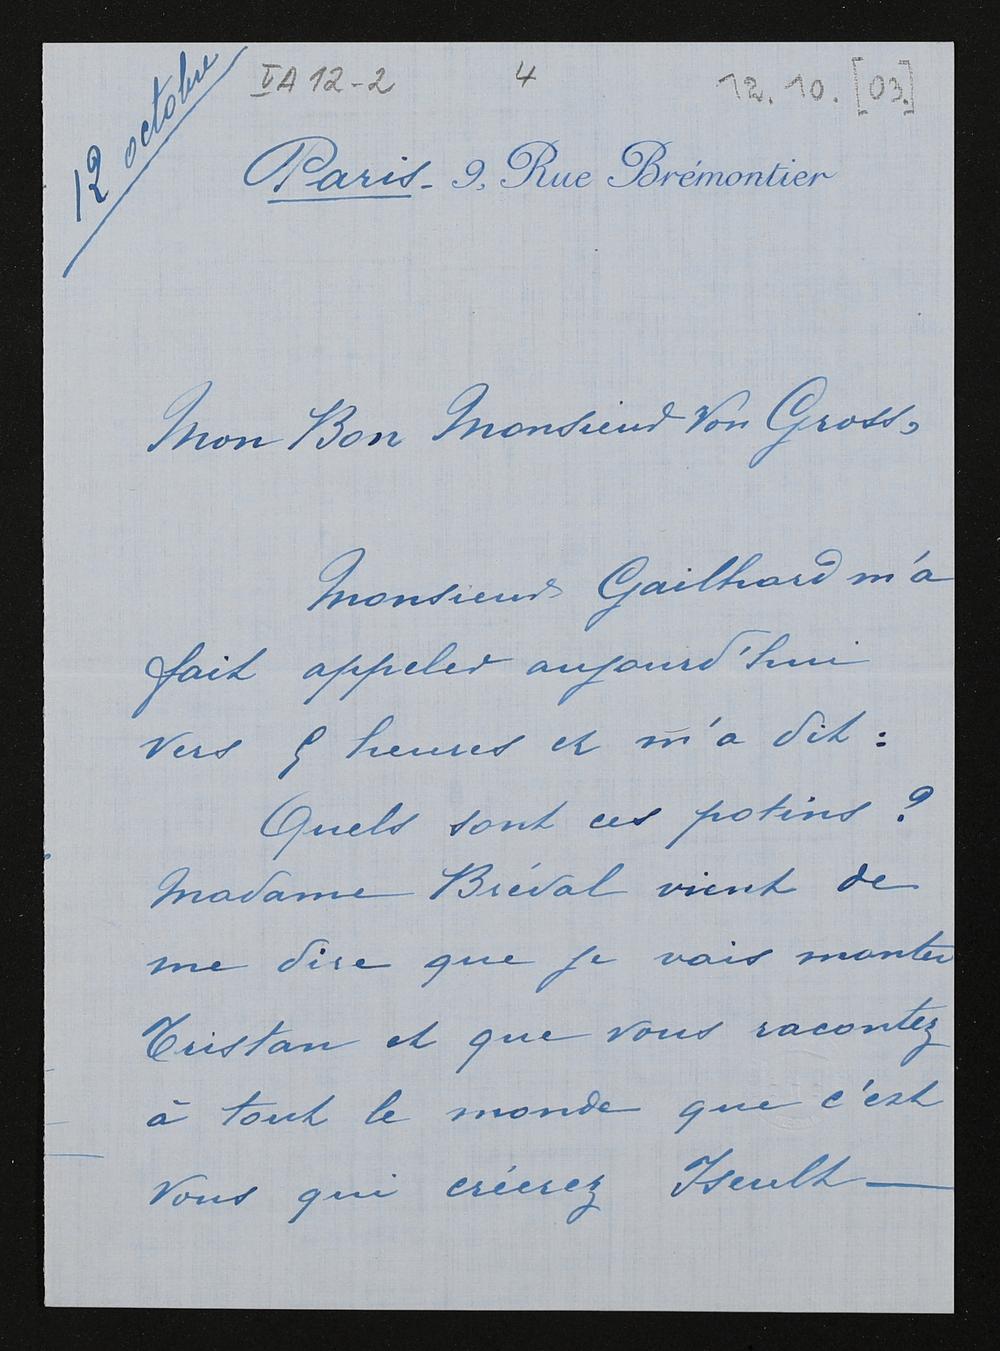 12 octobre
VA 12-2 4 12. 10. [03.]
Paris - 9, Rue Brémontier
Mon Bon Monsieur Von Gross,
Monsieur Gailhard m'a
fait appeler aujourd'hui
vers 5 heures et m'a dit :
Quels sont ces potins ?
Madame Bréval vient de
me dire que je vais monter
Tristan et que vous racontez
à tout le monde que c'est
vous qui créerez Iseult —